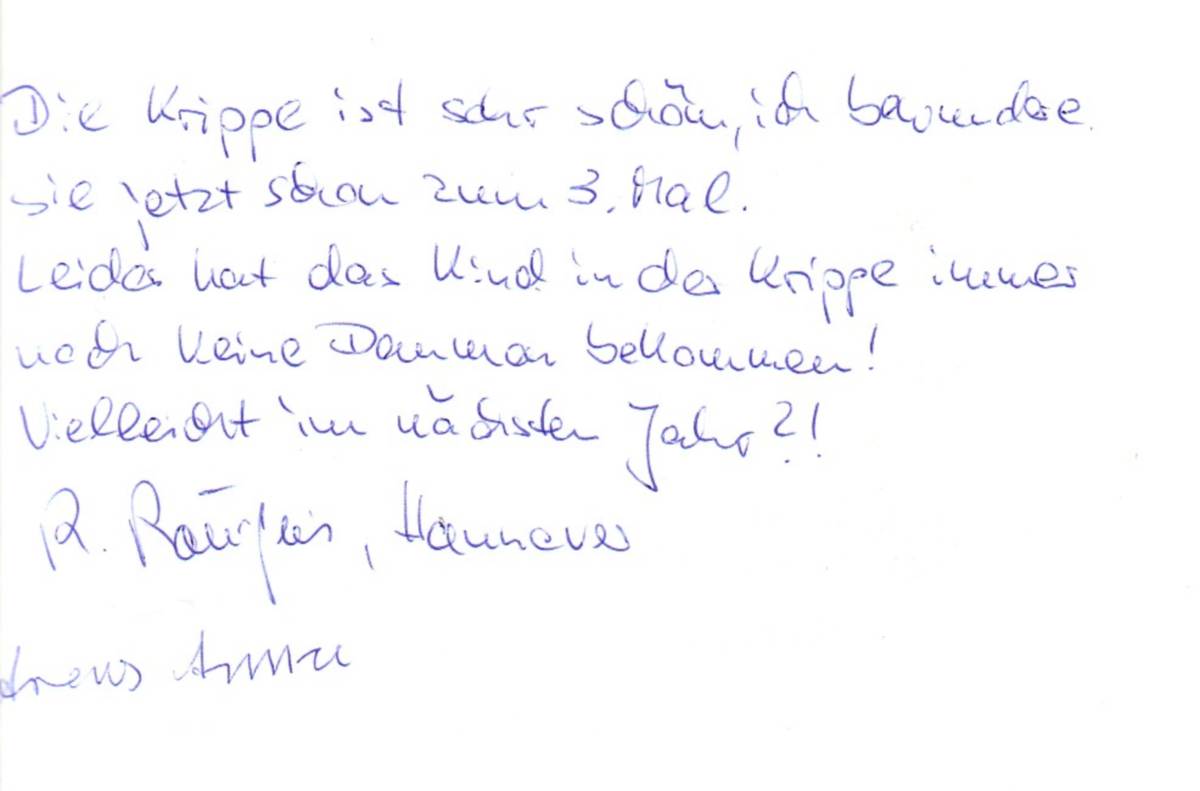 Die Krippe ist sehr schön, ich bewundere
sie jetzt schon zum 3. Mal.
Leider hat das Kind in der Krippe immer
noch keine Daumen bekommen!
Vielleicht im nächsten Jahr?!
R. , Hannover